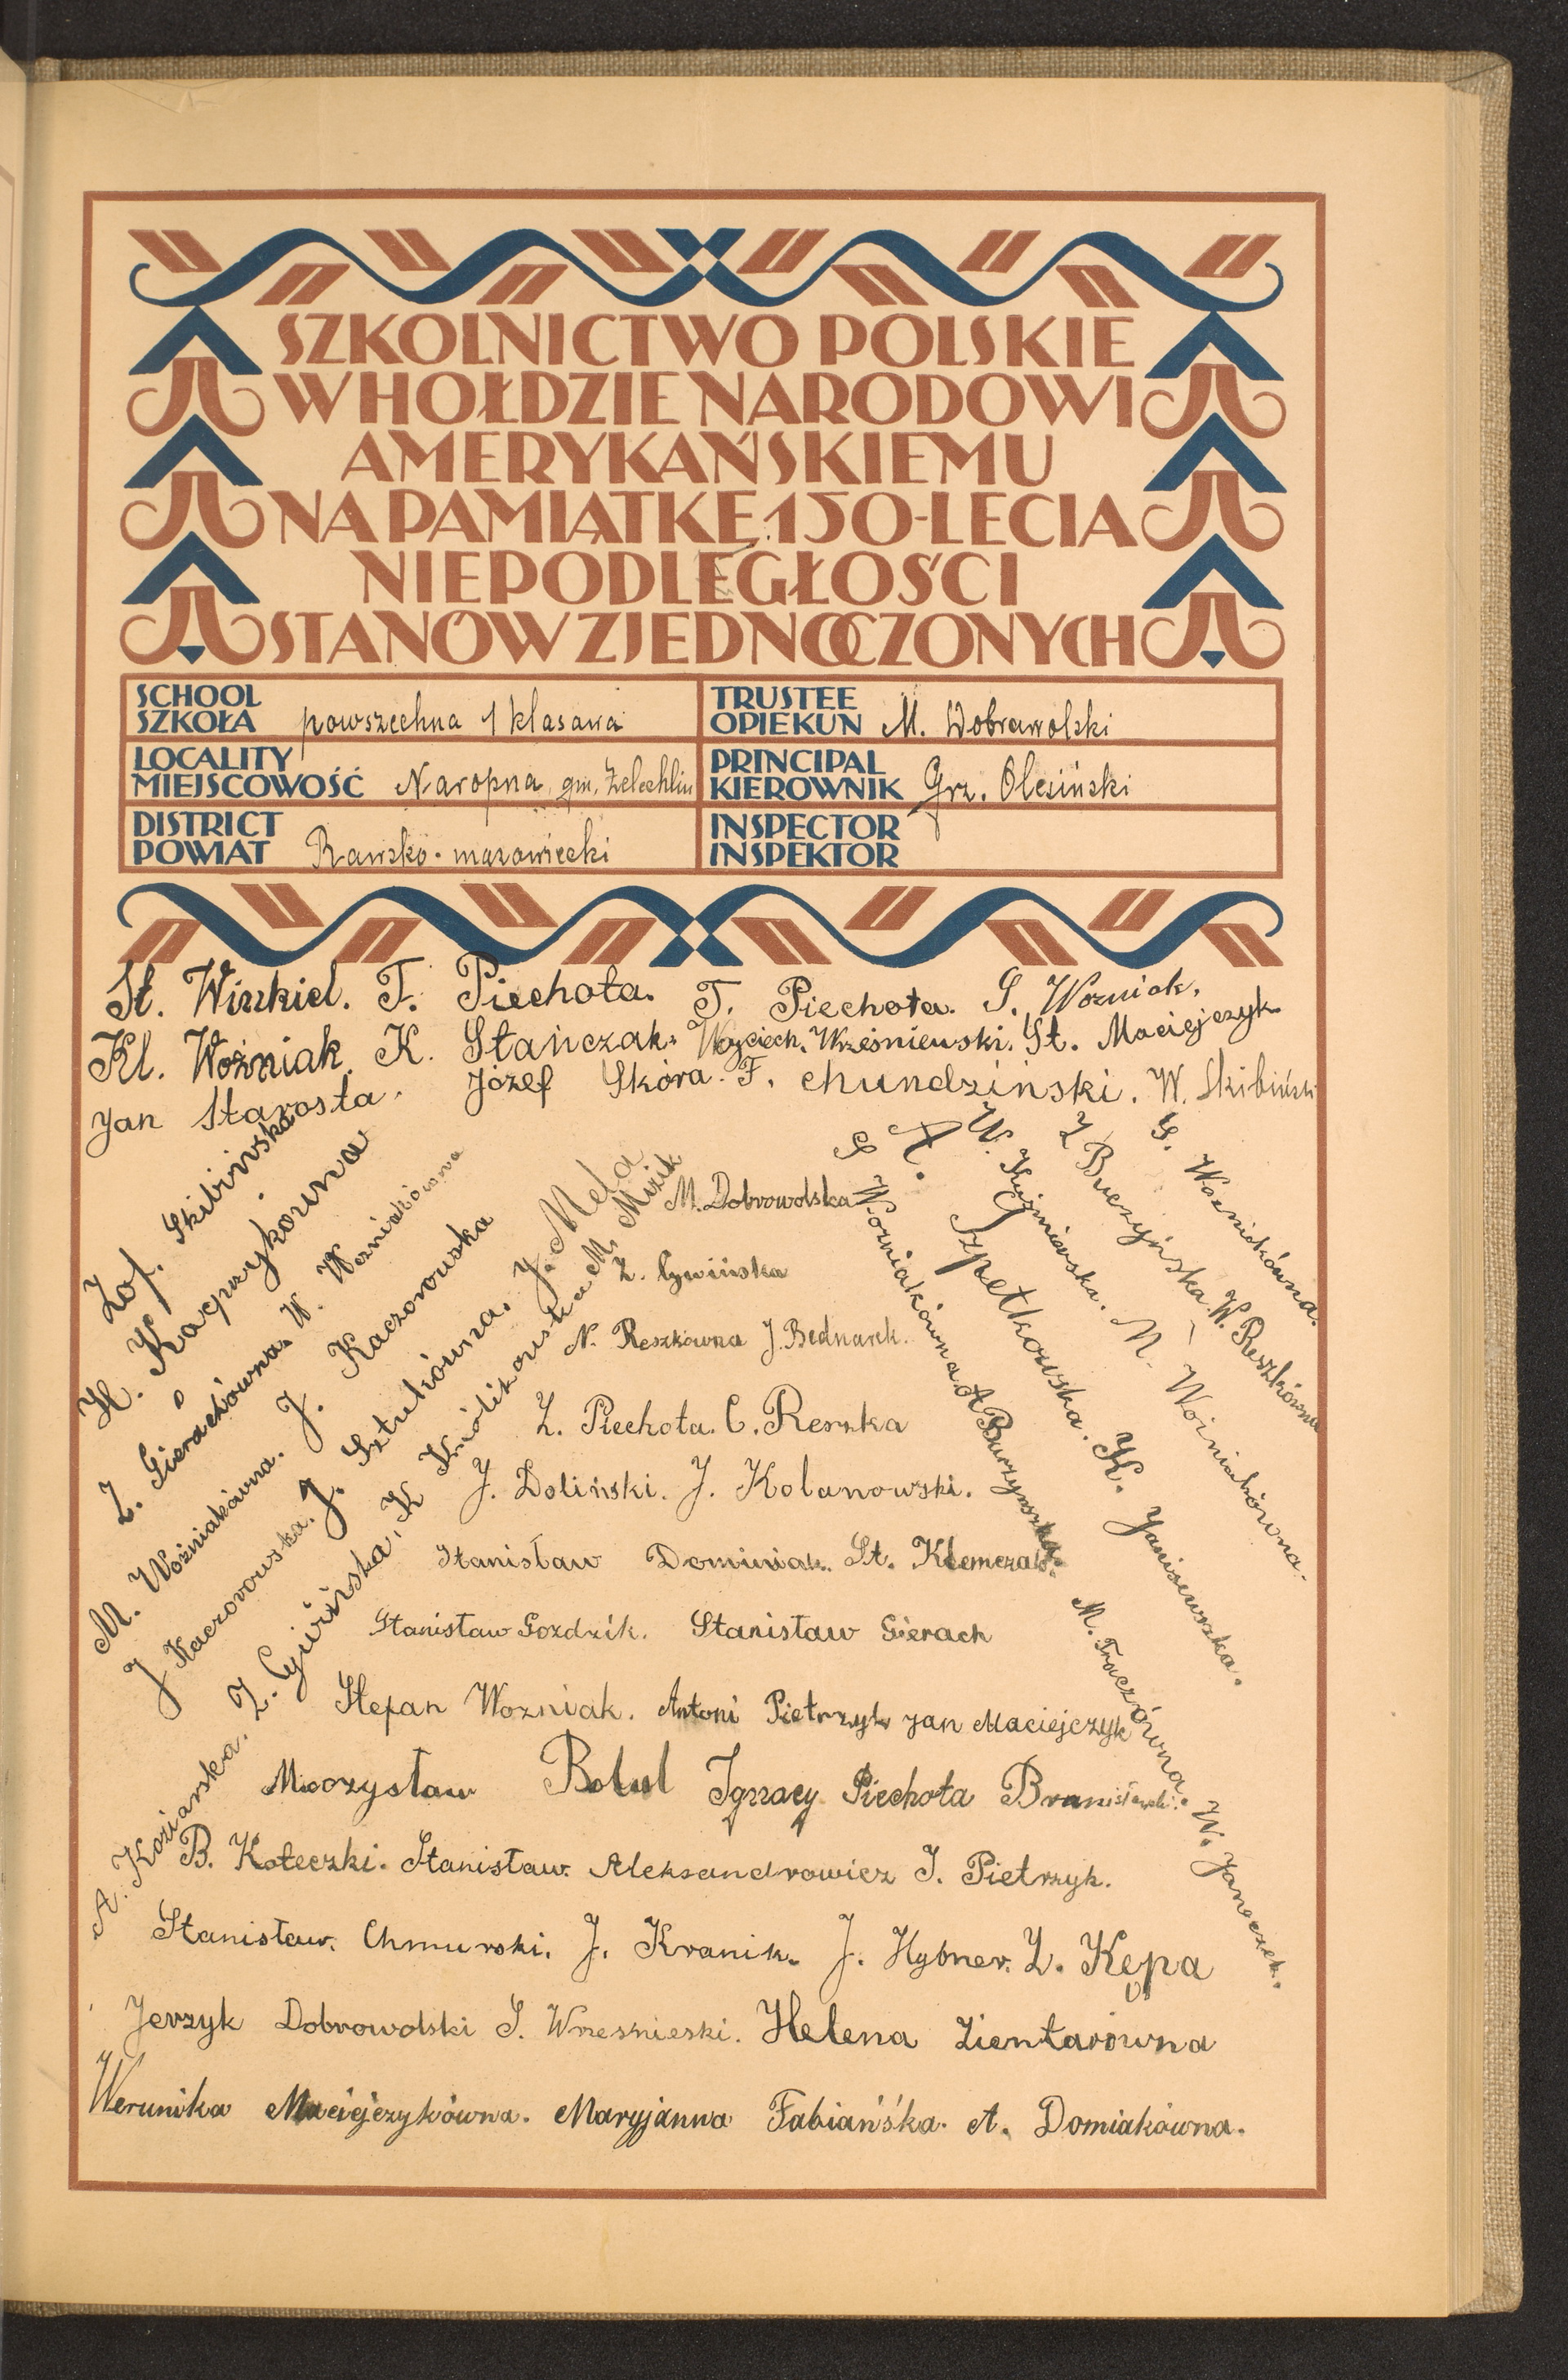 SZKOLNICTWO POLSKIE
W HOŁDZIE NARODOWI
AMERYKAŃSKIEMU
NA PAMIĄTKĘ 150-LECIA
NIEPODLEGŁOŚCI
STANÓW ZJEDNOCZONYCH
SCHOOL
SZKOŁA powszechna 1 klasowa
TRUSTEE
OPIEKUN M. Dobrowolski
LOCALITY
MIEJSCOWOŚĆ Naropna, gm. Żelechlin
PRINCIPAL
KIEROWNIK Grz. Olesiński
DISTRICT
POWIAT Rawsko-mazowiecki
INSPECTOR
INSPEKTOR
St. Winkiel. F. Piechota. T. Piechota. S. Wozniak.
Kl. Woźniak. K. Stańczak. Woyciech. Wrześniewski. St. Maciejczyk
Jan Starosta. Józef Skóra. F. chundziński. W. Skibiński
Zof. Skibińska
H. Kacpszykowna
Z. Gierachówna. W. Wozniakówna
M. Woźniakówna. J. Kaczorowska
J Kaczorowska. J. Sztukówna. J. Mela
A. Koziarska. Z. Cywińska. K Królikowska M. Mizik
M. Dobrowolska
Z. Cywińska
N. Reszkówna J. Bednarek.
Z. Piechota. C. Reszka
J. Doliński. J. Kolanowski.
Stanisław Dominiak. St. Klemczak.
Stanisław Gozdzik. Stanisław Gierach
Stefan Wozniak. Antoni Pietrzyk Jan Maciejczyk
Mieczysław Bolul Ignacy Piechota
B. Koteczki. Stanisław. Aleksandrowicz J. Pietrzyk.
Stanisław. Chmurski. J. Kranik. J. Hybner. Z. Kępa
Jerzyk Dobrowolski S. Wrzesnieski. Helena Zientarówna
Werunika Maciejczykówna. Maryjanna Fabiańśka. A. Domiakówna.
S Wozniakówna A Burzynska. M. Traczówna. W. Janeczek.
A. Szpetkowska. K. Janiszewska.
W. Kuźmińska. M. Woiniakówna.
Z Buczyńska W. Reszkówna
G. Wozniakówna.